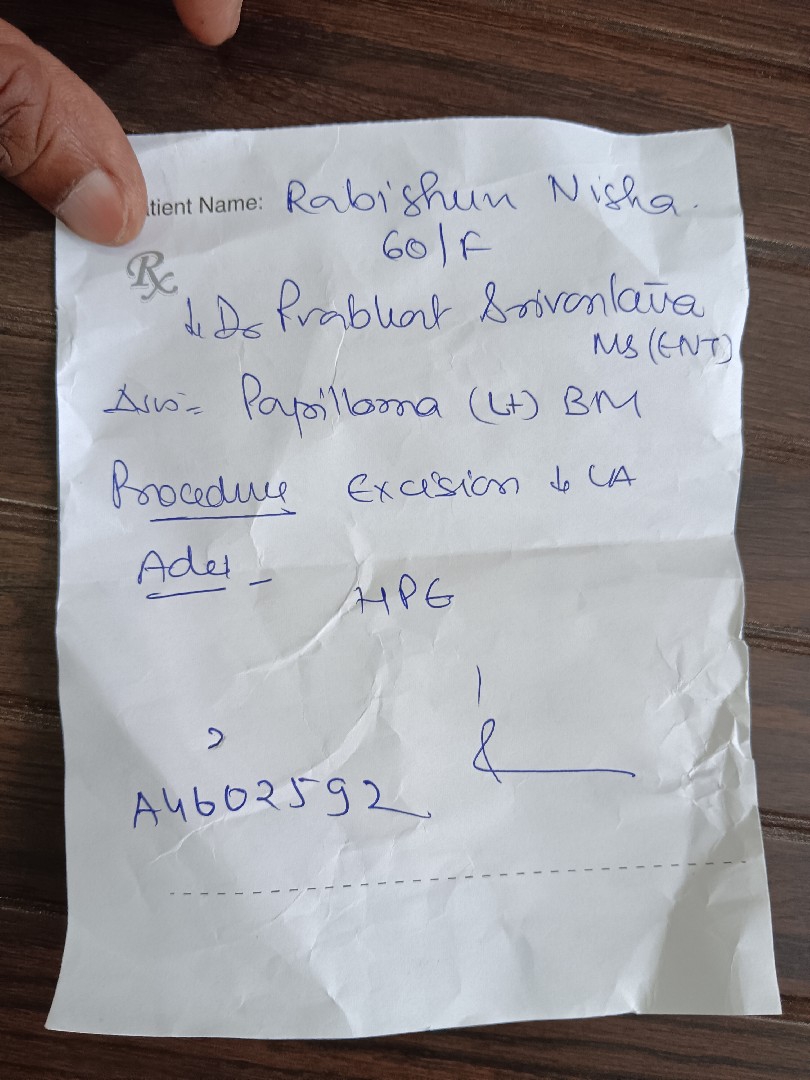 tient Name: Rabishun Nisha.
60/F
Rx
↓ Dr Prabhat Srivastava
MS (ENT)
Papilloma (Lt) BM
Procedure Excision ↓ LA
Adv -
HPE
A4602592